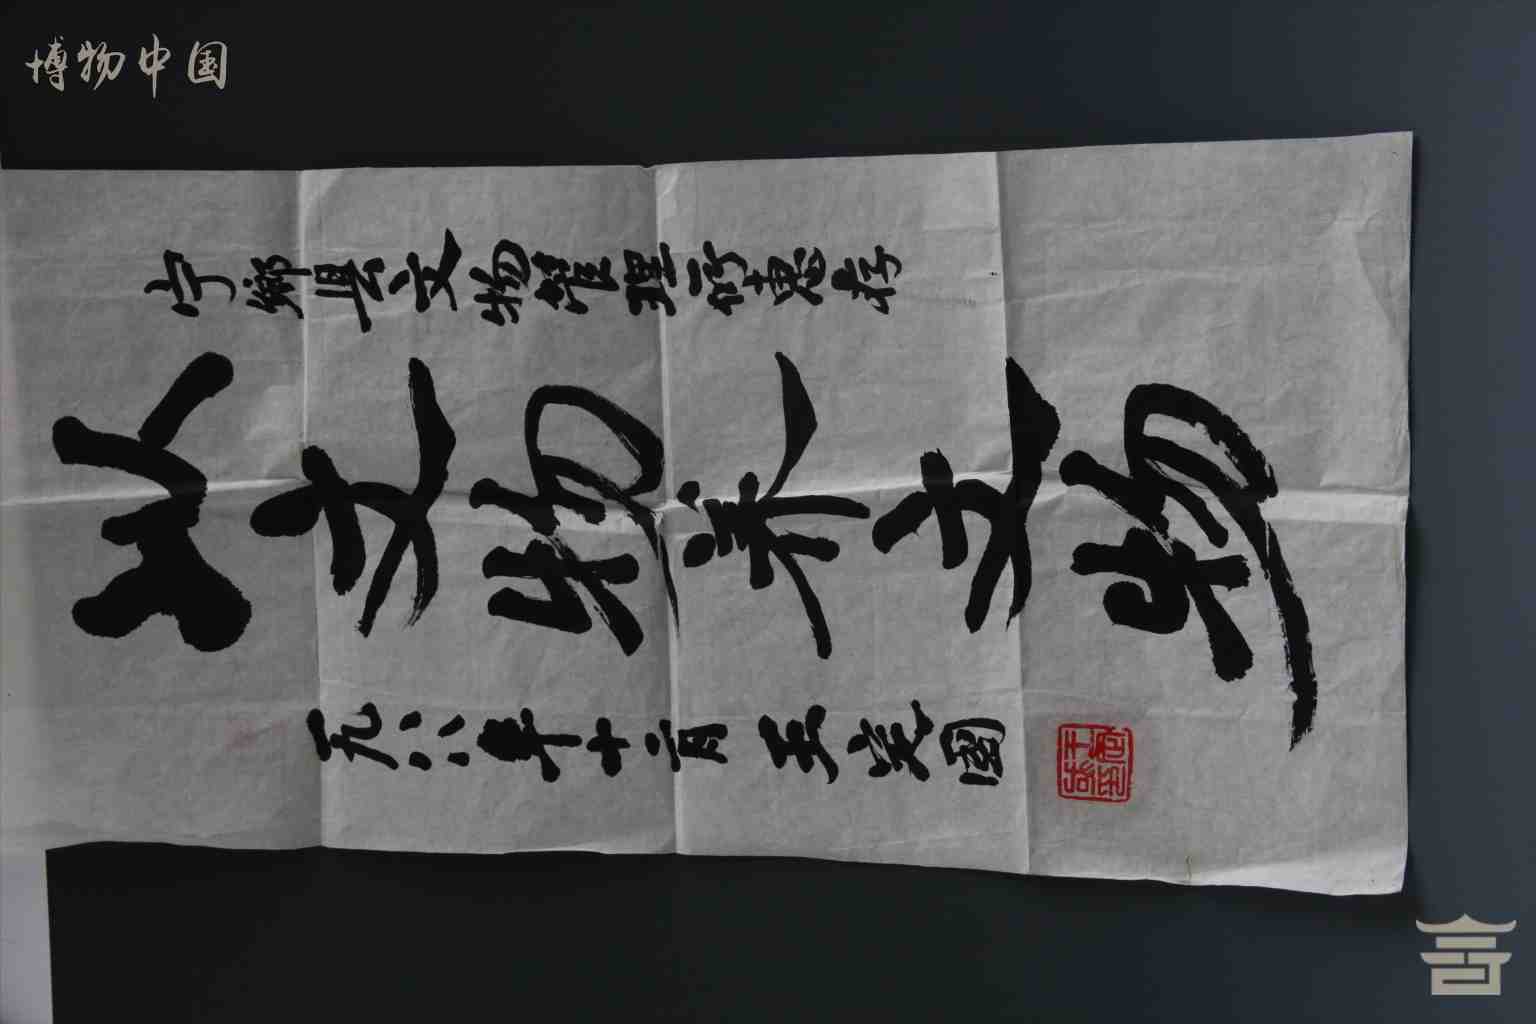 博物中国
宁鄉县文物管理所惠存
以文物养文物
一九八八年十二月 王